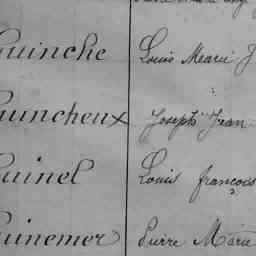 Guinche Louis Marie J
Guincheux Joseph Jean
Guinel Louis françois
Guinemer Pierre Marie